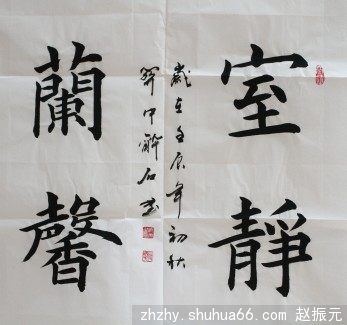 室靜
蘭馨
歲在壬辰年初秋
石书
zhzhy.shuhua66.com 赵振元